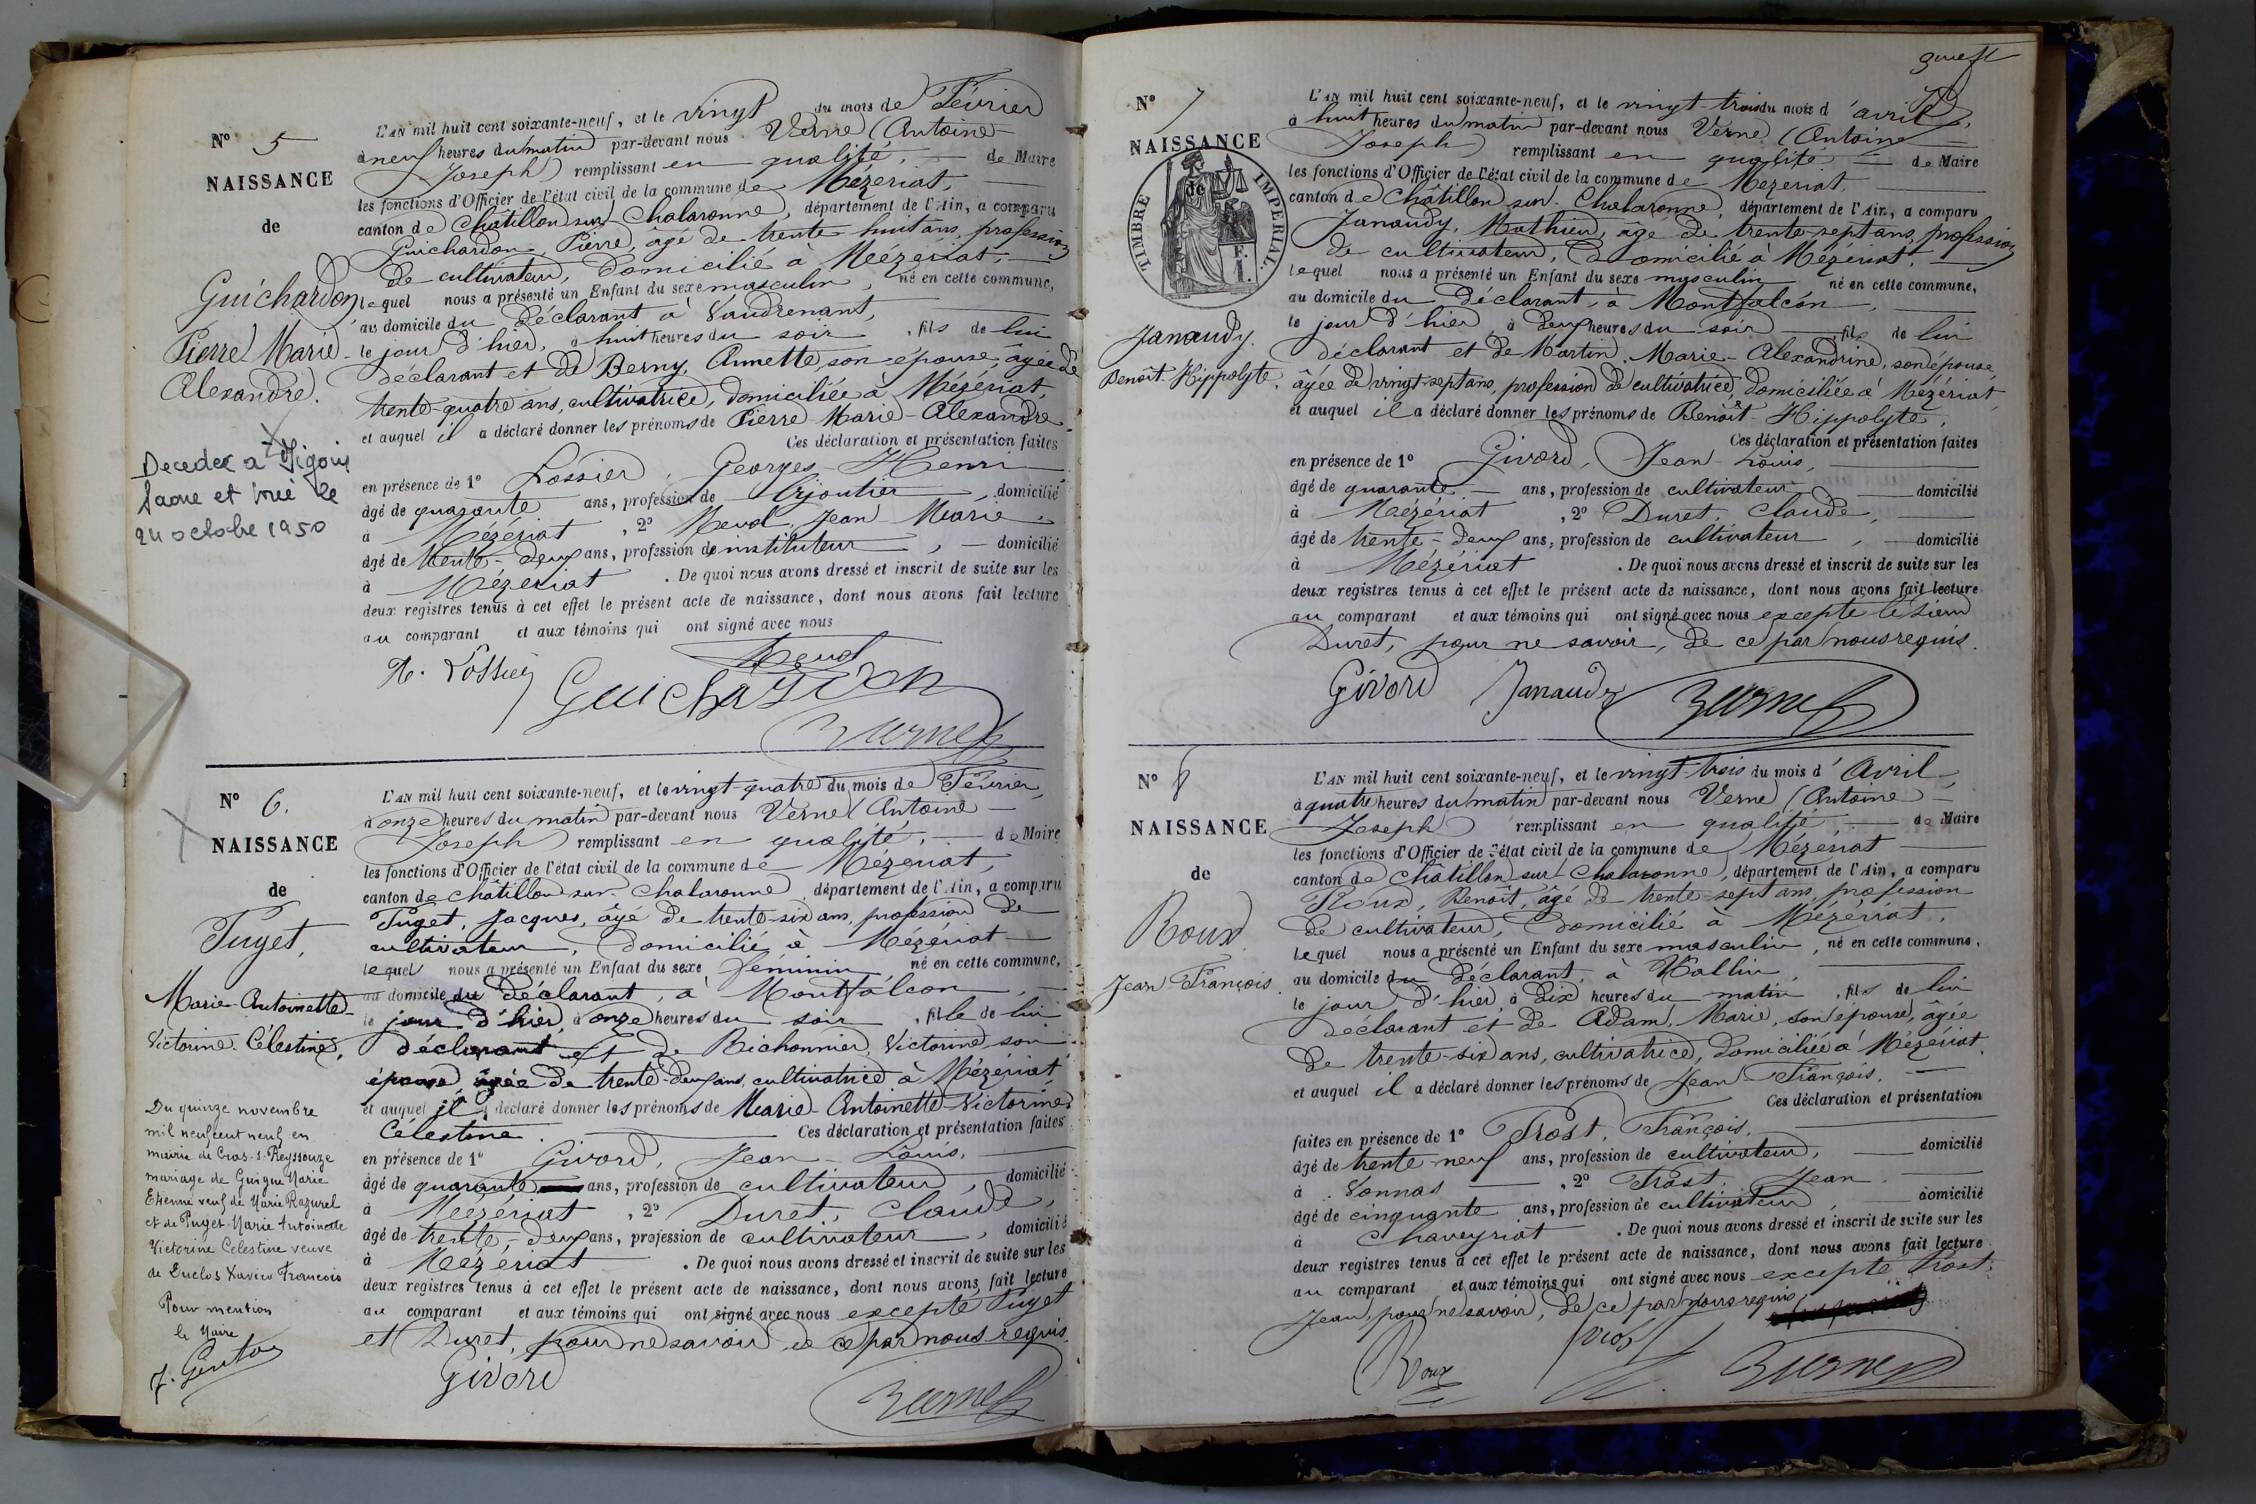 N° 5
NAISSANCE
de
Guichardon
Pierre Marie
Alexandre.
Décédé à Digoin
Saone et
24 octobre 1950
L'AN mil huit cent soixante-neuf, et le vingt du mois de Février
à neuf heures du matin par-devant nous Verne (Antoine
Joseph) remplissant en qualité, de Maire
les fonctions d'Officier de l'état civil de la commune de Mézériat,
canton de Châtillon sur Chalaronne, département de l'Ain, a comparu
Guichardon Pierre, âgé de trente huit ans, profession
de cultivateur, domicilié à Mézériat,
lequel nous a présenté un Enfant du sexe masculin, né en cette commune,
au domicile du déclarant à Vaudrenant,
le jour d'hier, à huit heures du soir, fils de lui
déclarant et de Berny, Annette, son épouse, âgée de
trente-quatre ans, cultivatrice, domiciliée à Mézériat,
et auquel il a déclaré donner les prénoms de Pierre Marie-Alexandre.
Ces déclaration et présentation faites
en présence de 1° Lossier, Georges-Henri
âgé de quarante ans, profession de bijoutier, domicilié
à Mézériat, 2° Jean Marie,
âgé de trente-deux ans, profession de instituteur, domicilié
à Mézériat. De quoi nous avons dressé et inscrit de suite sur les
deux registres tenus à cet effet le présent acte de naissance, dont nous avons fait lecture
au comparant et aux témoins qui ont signé avec nous
H. Lossier
Guichardon
Verne
N° 6.
NAISSANCE
de
Puget,
Marie-Antoinette-
Victorine-Célestine,
Du quinze novembre
mil neuf cent neuf en
mairie de Cras-s-Reyssouze
mariage de Guigue Marie
Etienne veuf de Marie Ragurel
et de Puget Marie Antoinette
Victorine Célestine veuve
de Duclos Xavier François
Pour mention
le Maire
L'AN mil huit cent soixante-neuf, et le vingt-quatre du mois de Février,
à onze heures du matin par-devant nous Verne (Antoine
Joseph) remplissant en qualité, de Maire
les fonctions d'Officier de l'état civil de la commune de Mézériat,
canton de Châtillon sur Chalaronne, département de l'Ain, a comparu
Puget, Jacques, âgé de trente-six ans, profession de
cultivateur, domicilié à Mézériat
lequel nous a présenté un Enfant du sexe féminin, né en cette commune,
au domicile du déclarant, à Montfalcon,
le jour d'hier, à onze heures du soir, fille de lui
déclarant et de Bichonnier, Victorine son
épouse, âgée de trente-deux ans, cultivatrice à Mézériat,
et auquel il a déclaré donner les prénoms de Marie-Antoinette-Victorine
Célestine. Ces déclaration et présentation faites
en présence de 1° Givord, Jean-Louis,
âgé de quarante ans, profession de cultivateur, domicilié
à Mézériat, 2° Duret, Claude,
âgé de trente-deux ans, profession de cultivateur, domicilié
à Mézériat. De quoi nous avons dressé et inscrit de suite sur les
deux registres tenus à cet effet le présent acte de naissance, dont nous avons fait lecture
au comparant et aux témoins qui ont signé avec nous excepté Puget
et Duret, pour ne savoir, de ce par nous requis.
Givord
Verne
N° 7
NAISSANCE
de
TIMBRE IMPÉRIAL.
Janaudy.
Benoît-Hippolyte.
L'AN mil huit cent soixante-neuf, et le vingt-trois du mois d'avril,
à huit heures du matin par-devant nous Verne (Antoine
Joseph) remplissant en qualité de Maire
les fonctions d'Officier de l'état civil de la commune de Mézériat,
canton de Châtillon sur Chalaronne, département de l'Ain, a comparu
Janaudy, Mathieu, âgé de trente-sept ans, profession
de cultivateur, domicilié à Mézériat,
lequel nous a présenté un Enfant du sexe masculin né en cette commune,
au domicile du déclarant, à Montfalcon,
le jour d'hier, à deux heures du soir, fils de lui
déclarant et de Martin, Marie-Alexandrine, son épouse,
âgée de vingt-sept ans, profession de cultivatrice, domiciliée à Mézériat,
et auquel il a déclaré donner les prénoms de Benoît-Hippolyte,
Ces déclaration et présentation faites
en présence de 1° Givord, Jean-Louis,
âgé de quarante ans, profession de cultivateur domicilié
à Mézériat, 2° Duret, Claude,
âgé de trente-deux ans, profession de cultivateur, domicilié
à Mézériat. De quoi nous avons dressé et inscrit de suite sur les
deux registres tenus à cet effet le présent acte de naissance, dont nous avons fait lecture
au comparant et aux témoins qui ont signé avec nous excepté le sieur
Duret, pour ne savoir, de ce par nous requis.
Givord Janaudy Verne
N° 8
NAISSANCE
de
Roux
Jean François.
L'AN mil huit cent soixante-neuf, et le vingt-trois du mois d'Avril,
à quatre heures du matin par-devant nous Verne (Antoine
Joseph) remplissant en qualité de Maire
les fonctions d'Officier de l'état civil de la commune de Mézériat
canton de Châtillon sur Chalaronne, département de l'Ain, a comparu
Roux, Benoît, âgé de trente-sept ans, profession
de cultivateur, domicilié à Mézériat,
lequel nous a présenté un Enfant du sexe masculin, né en cette commune,
au domicile du déclarant, à Vallin,
le jour d'hier, à dix heures du matin, fils de lui
déclarant et de Adam, Marie, son épouse, âgée
de trente-six ans, cultivatrice, domiciliée à Mézériat,
et auquel il a déclaré donner les prénoms de Jean-François.
Ces déclaration et présentation
faites en présence de 1° Prost, François,
âgé de trente-neuf ans, profession de cultivateur, domicilié
à Vonnas, 2° Prost, Jean,
âgé de cinquante ans, profession de cultivateur, domicilié
à Chaveyriat. De quoi nous avons dressé et inscrit de suite sur les
deux registres tenus à cet effet le présent acte de naissance, dont nous avons fait lecture
au comparant et aux témoins qui ont signé avec nous excepté Prost,
Jean, pour ne savoir, de ce par nous requis,
Roux Prost Verne